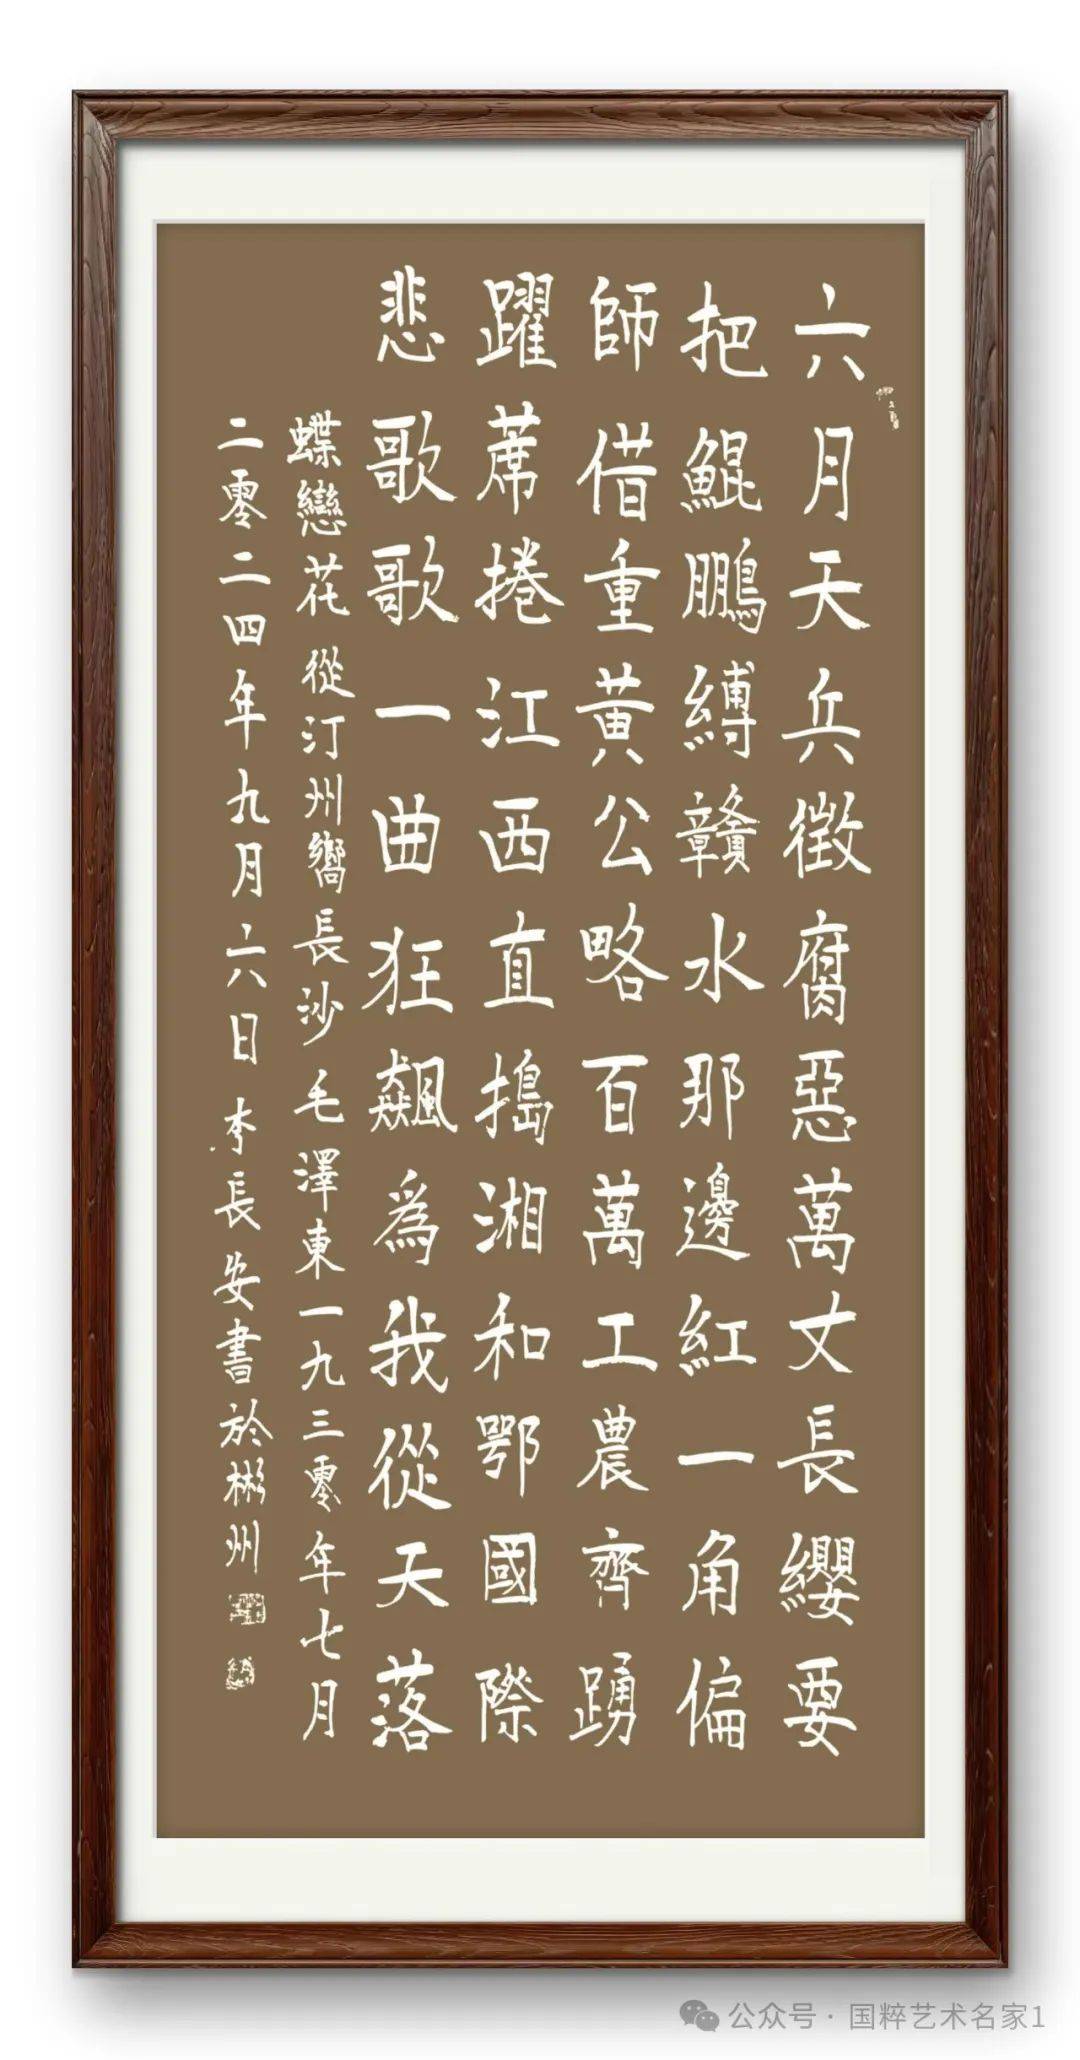 六月天兵徵腐惡萬丈長纓要
把鯤鵬縛贛水那邊紅一角偏
師借重黃公略百萬工農齊踴
躍蓆捲江西直搗湘和鄂國際
悲歌歌一曲狂飆為我從天落
蝶戀花從汀州嚮長沙毛澤東一九三零年七月
二零二四年九月六日李長安書於彬州
公众号·国粹艺术名家1